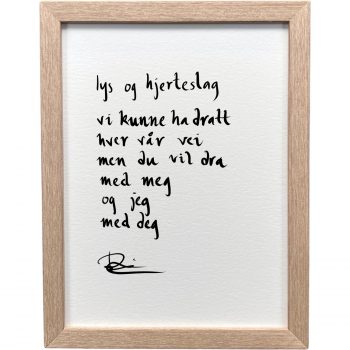 lys og hjerteslag
vi kunne ha dratt
hver vår vei
men du vil dra
med meg
og jeg
med deg